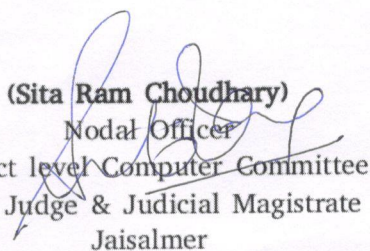 (Sita Ram Choudhary)
Nodal Officer
ct level Computer Committee
Judge & Judicial Magistrate
Jaisalmer